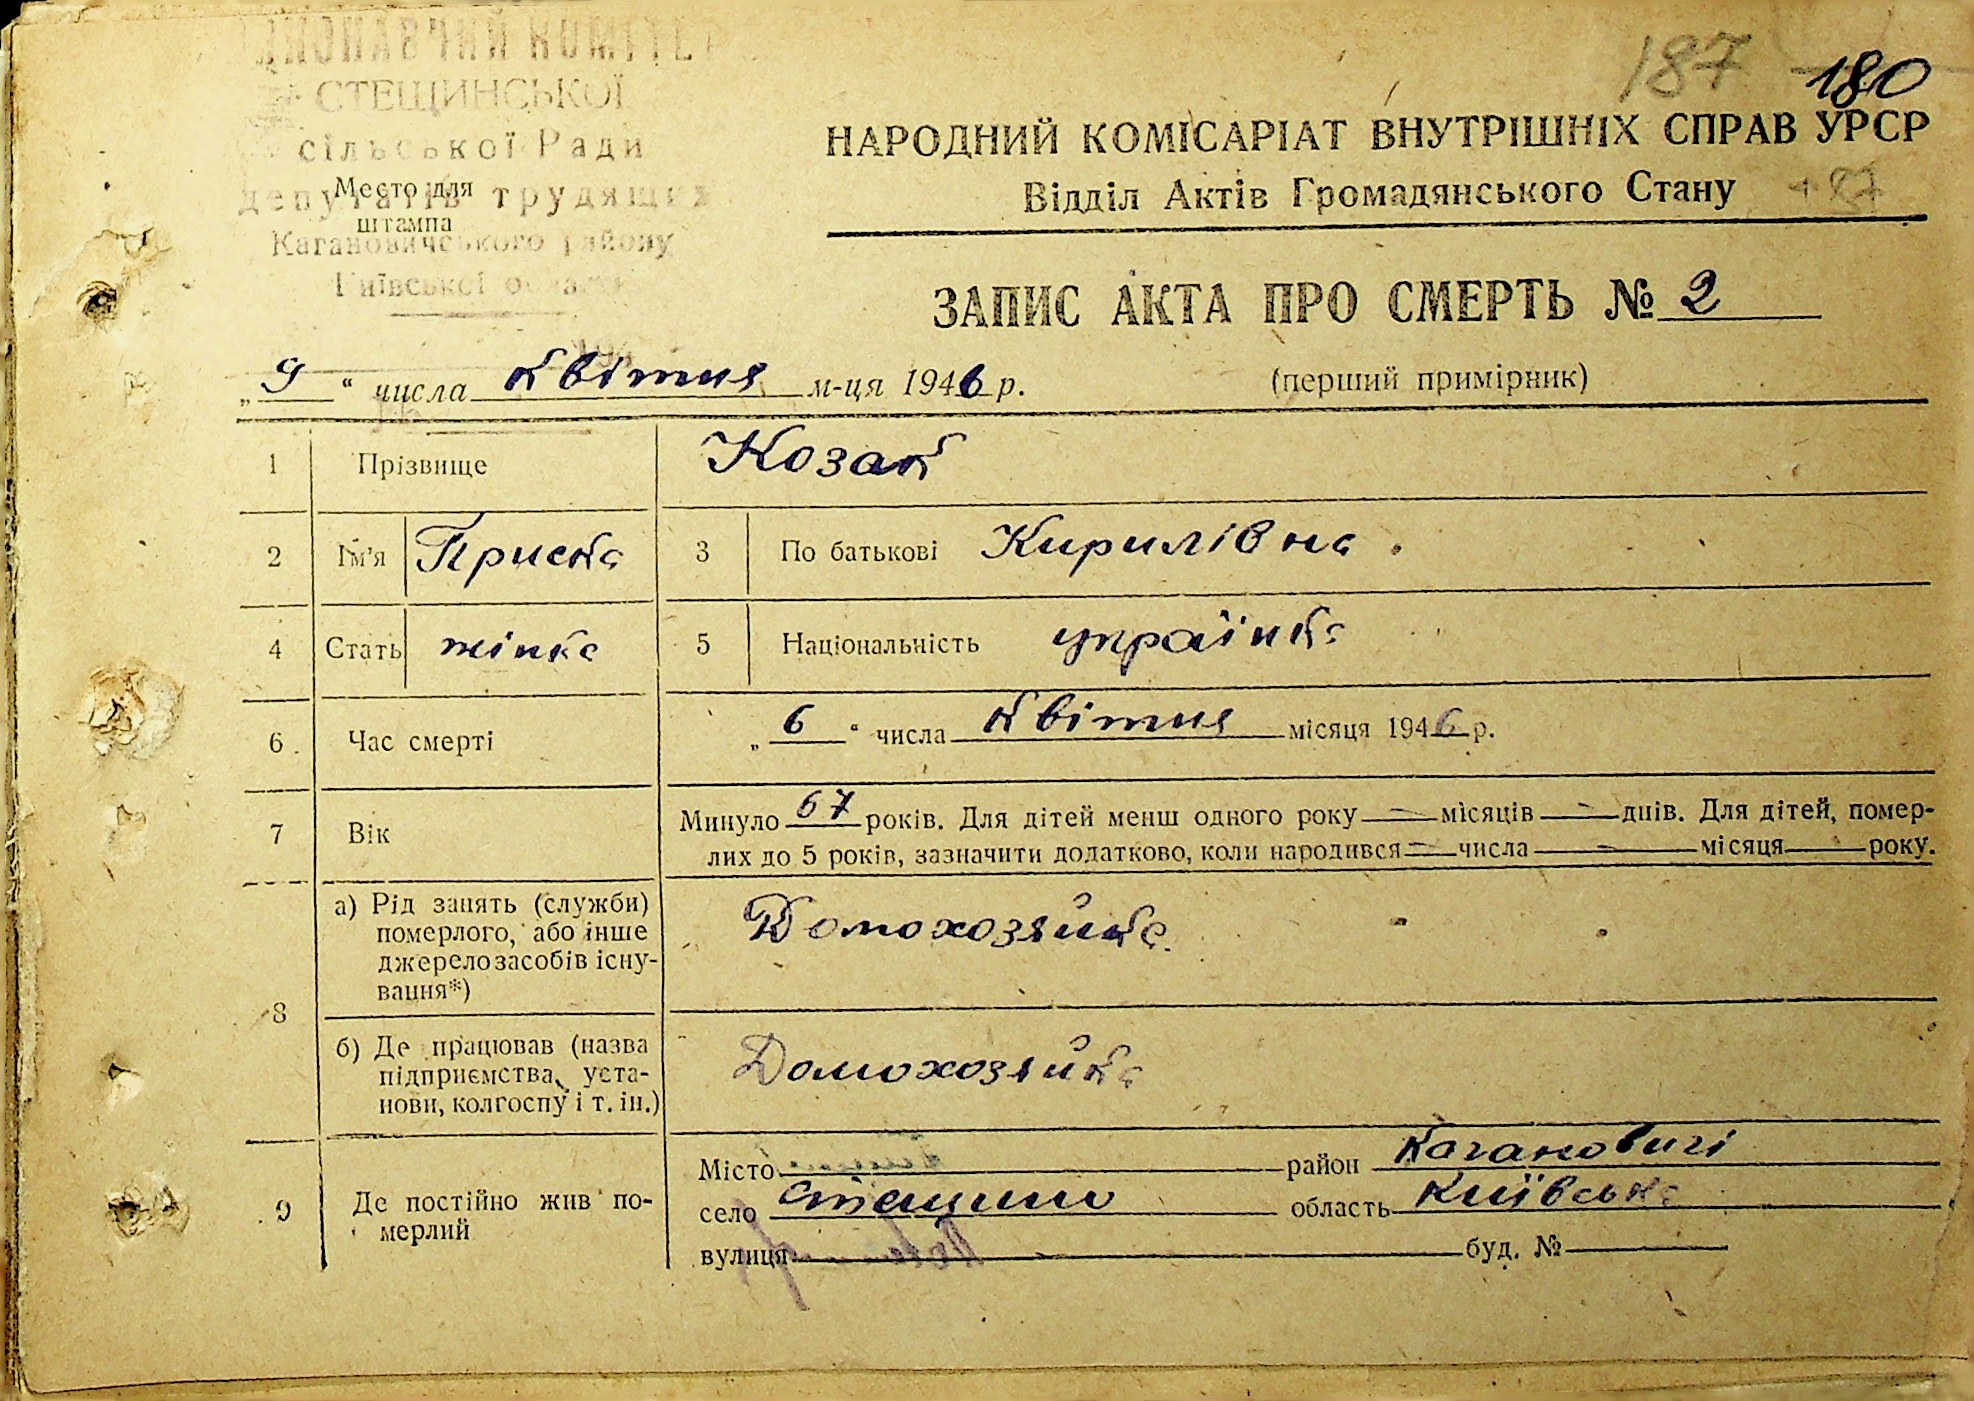 ВИКОНАВЧИЙ КОМІТЕТ
СТЕЩИНСЬКОЇ
сільської Ради
депутатів трудящих
Место для
штампа
Кагановичського району
Київської області
187 180
НАРОДНИЙ КОМІСАРІАТ ВНУТРІШНІХ СПРАВ УРСР
Відділ Актів Громадянського Стану
ЗАПИС АКТА ПРО СМЕРТЬ № 2
„ 9 “ числа квітня м-ця 1946 р. (перший примірник)
1 Прізвище Козак
2 Ім'я Приска 3 По батькові Кирилівна
4 Стать жінка 5 Національність українка
6 Час смерті „ 6 “ числа квітня місяця 1946 р.
7 Вік Минуло 67 років. Для дітей менш одного року — місяців — днів. Для дітей, помер-
лих до 5 років, зазначити додатково, коли народився — числа — місяця — року.
8 а) Рід занять (служби)
померлого, або інше
джерело засобів існу-
вання*)
Домохозяйка
б) Де працював (назва
підприємства, уста-
нови, колгоспу і т. ін.)
Домохозяйка
9 Де постійно жив по-
мерлий
Місто район Кагановичі
село Стещино область Київська
вулиця буд. №